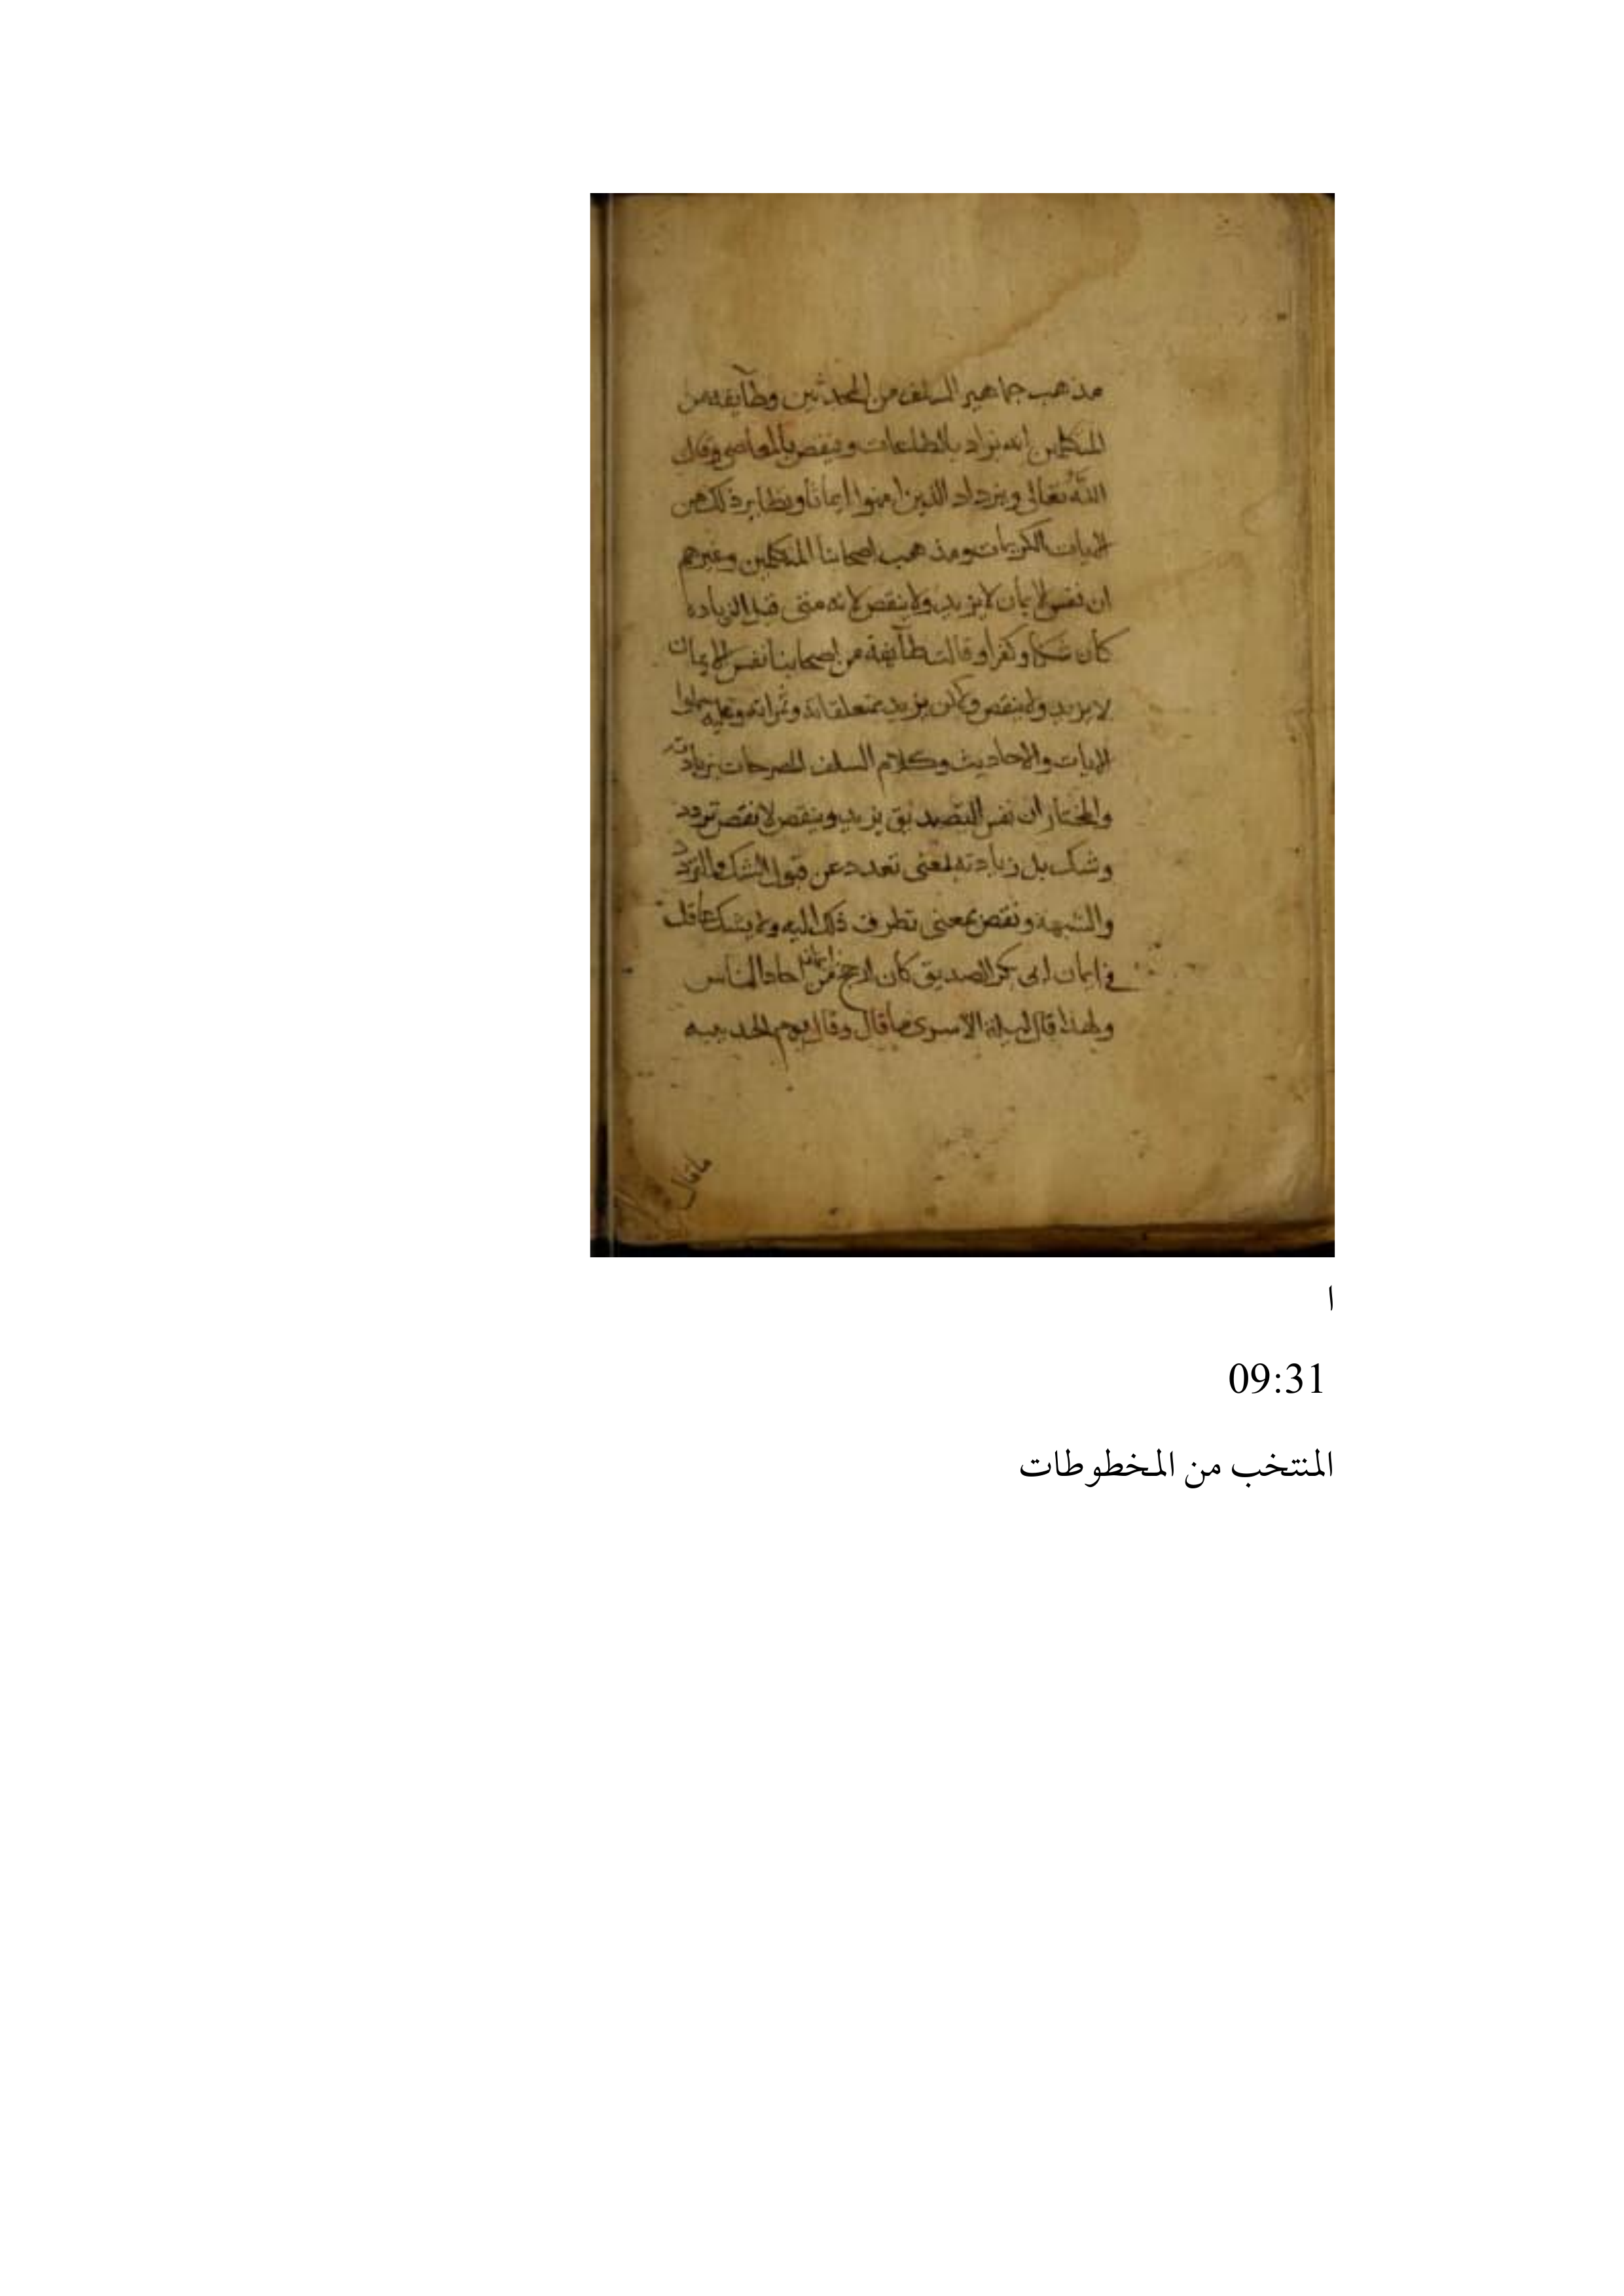 مذهب جماهير السلف من المحدثين وطآيفه من
المتكلمين انه يزاد بالطاعات وينقص بالمعاصي وقال
الله تعالى ويزداد الذين امنوا ايمانا ونظاير ذلك من
الايات الكريمات ومذهب اصحابنا المتكلمين وغيرهم
ان نفس الايمان لا يزيد ولا ينقص لانه متى قبل الزياده
كان شكا وكفرا وقالت طآيفة من اصحابنا نفس الايمان
لا يزيد ولا ينقص ولكن يزيد بمتعلقاته وثمراته وعليه حملوا
الايات والاحاديث وكلام السلف المصرحات بزيادته
والمختار ان نفس التصديق يزيد وينقص لا نقص تردد
وشك بل زيادته بمعنى تعدد عن قبول الشك والتردد
والشبهة ونقص بمعنى تطرق ذلك اليه ولا يشك عاقل
في ايمان ابى بكر الصديق كان ارجح من ايمان احاد الناس
ولهذا قال ليلة الاسرى ما قال وقال يوم الحديبيه
ما قال
ا
09:31
المنتخب من المخطوطات